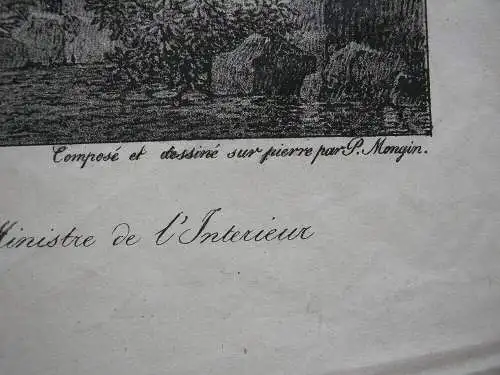 Composé et dessiné sur pierre par P. Mongin.
Ministre de l'Interieur